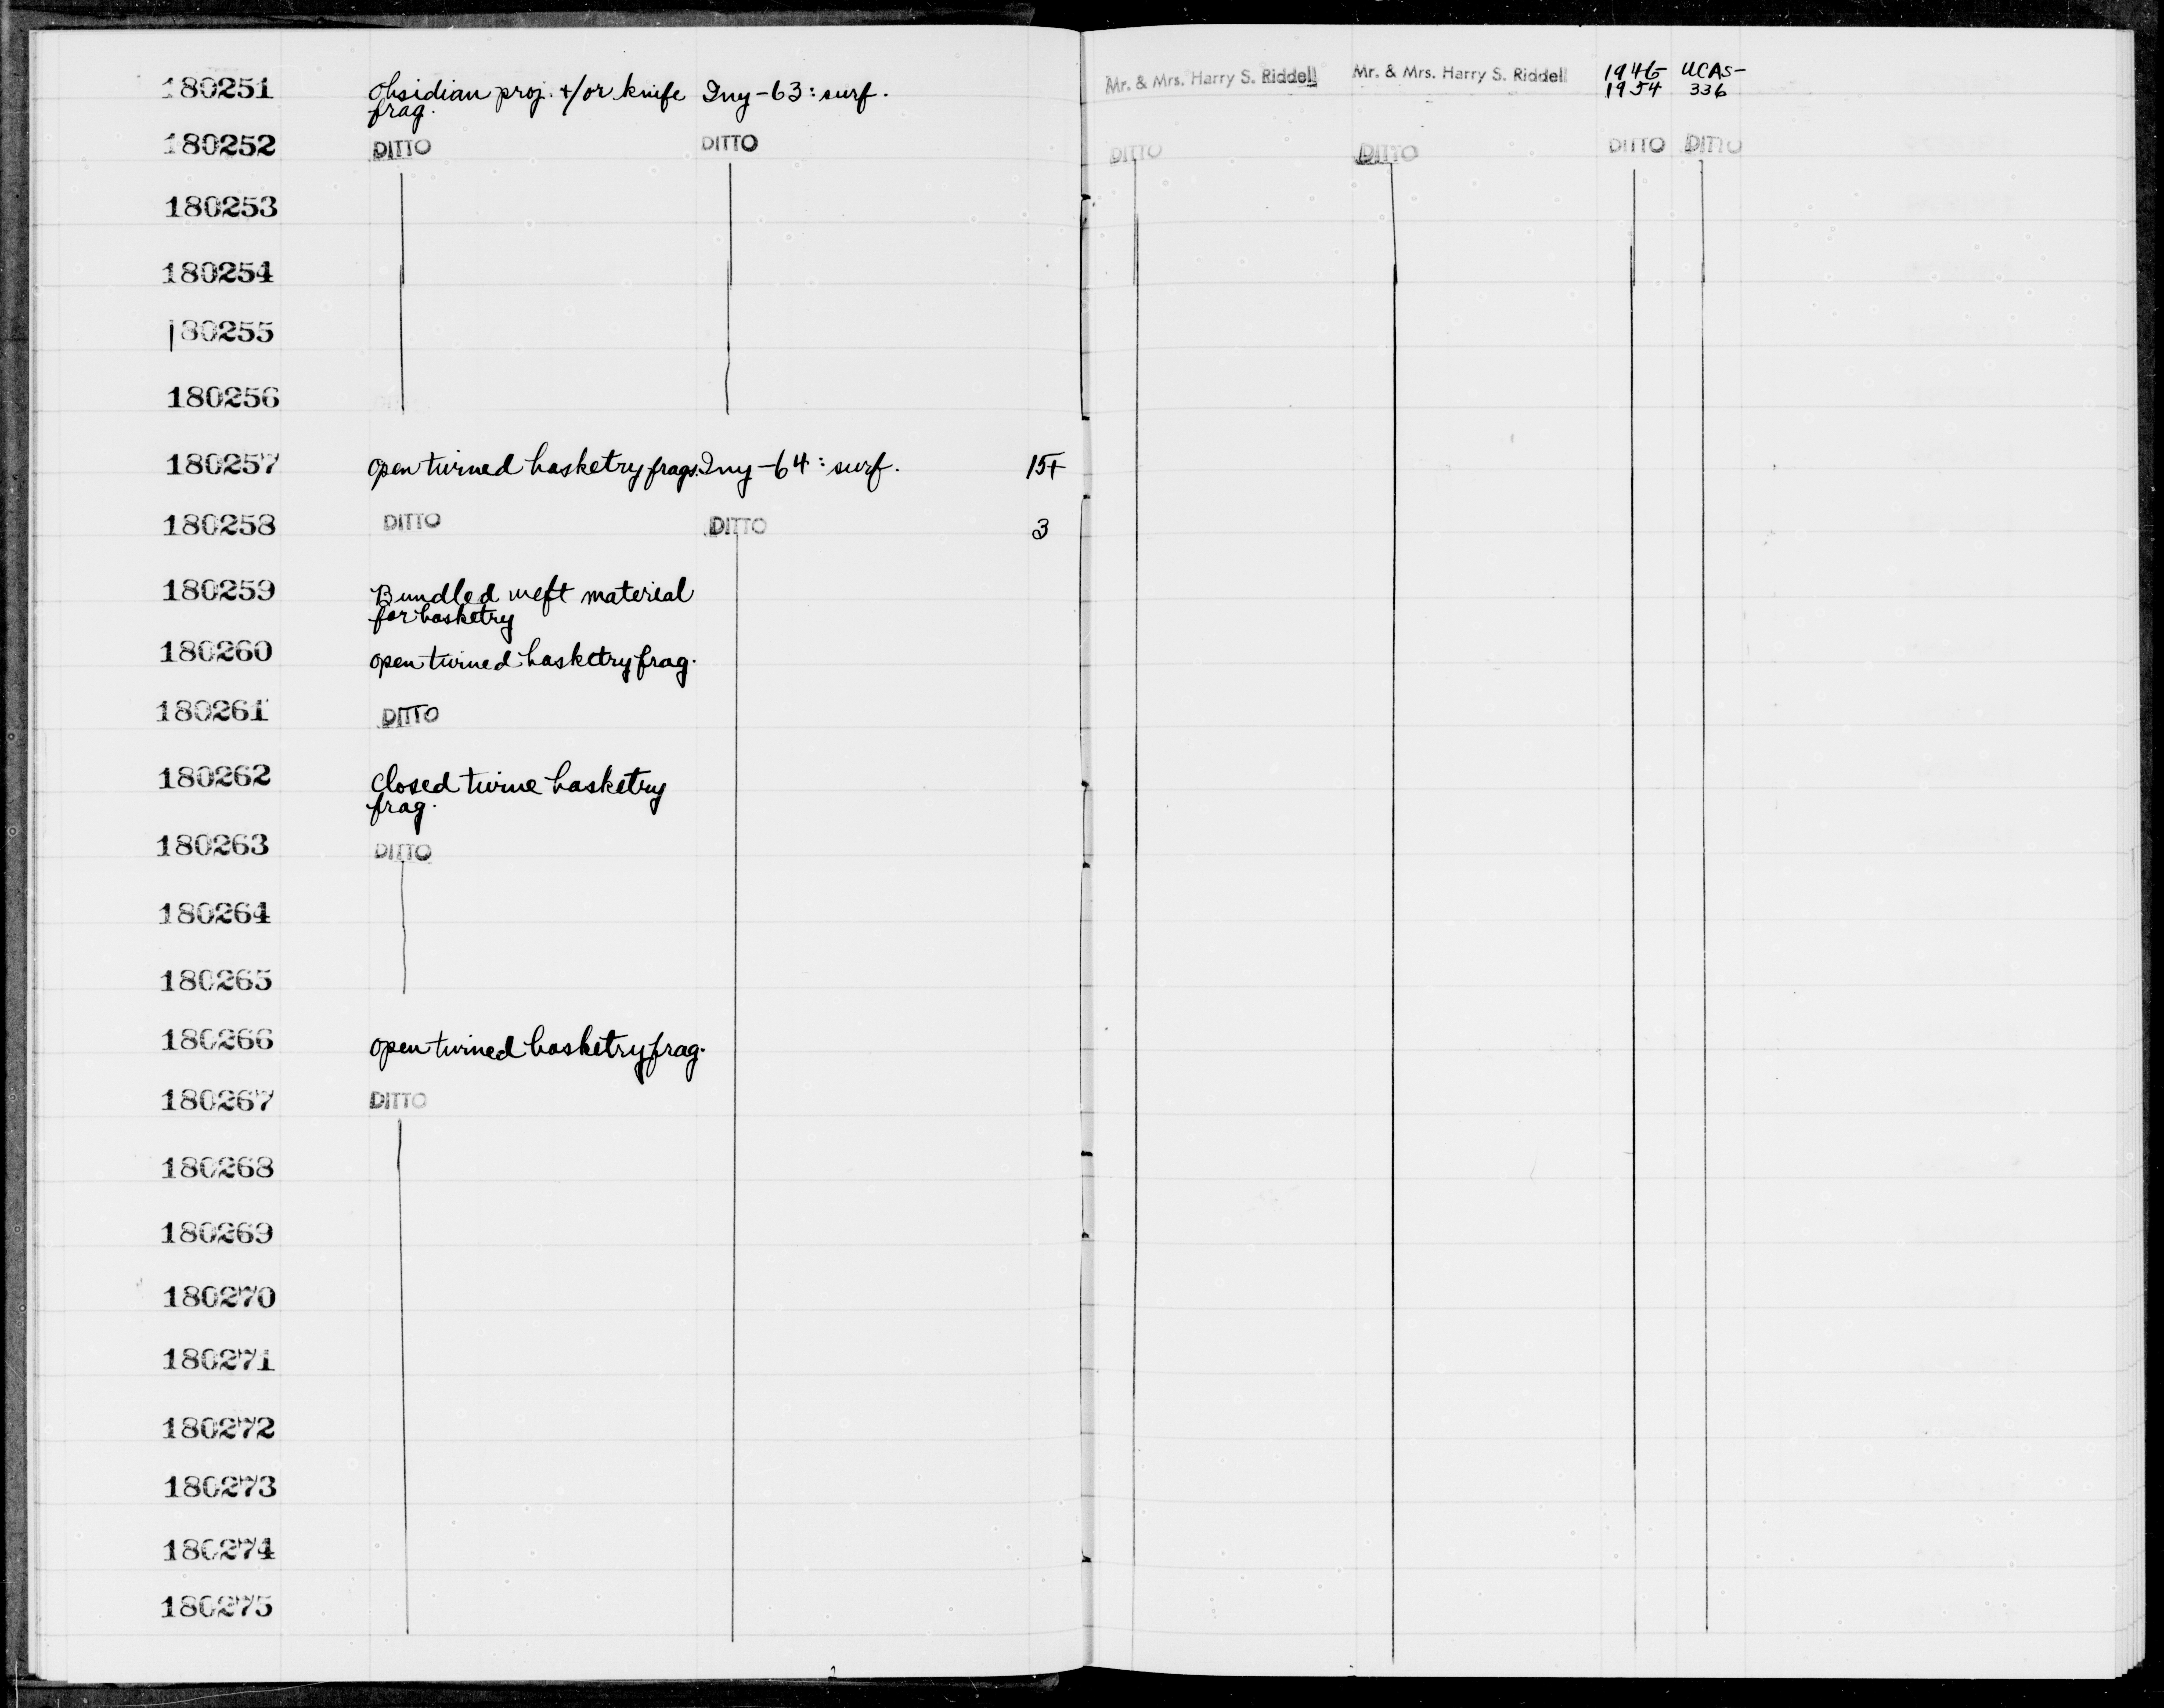 180251 Obsidian proj. +/or knife Iny-63: surf. Mr. & Mrs. Harry S. Riddell Mr. & Mrs. Harry S. Riddell 1946- UCAS-
frag. 1954 336
180252 DITTO DITTO DITTO DITTO DITTO DITTO
180253
180254
180255
180256
180257 Open twined basketry frags. Iny-64: surf. 15+
180258 DITTO DITTO 3
180259 Bundled weft material
for basketry
180260 open twined basketry frag.
180261 DITTO
180262 Closed twine basketry
frag.
180263 DITTO
180264
180265
180266 open twined basketry frag.
180267 DITTO
180268
180269
180270
180271
180272
180273
180274
180275